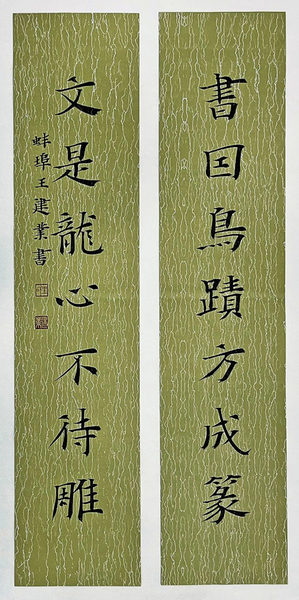 書因鳥蹟方成篆
文是龍心不待雕
蚌埠王建業書